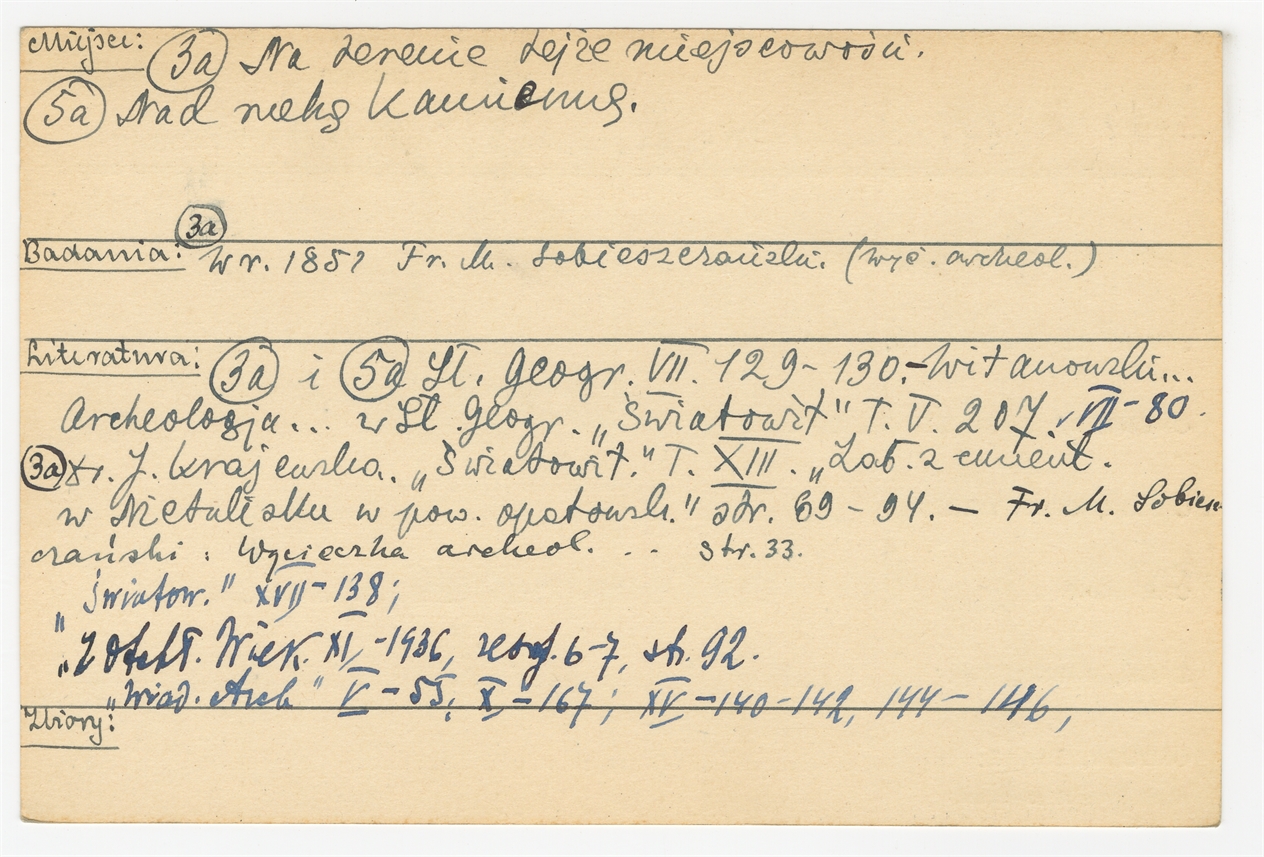 Miejsce: (3a) Na terenie tejże miejscowości.
(5a) Nad rzeką Kamienną.
(3a)
Badania: W r. 1851 Fr. M. Sobieszczański. (wyc. archeol.)
Literatura: (3a) i (5a) Sł. Geogr. VII. 129-130.- Witanowski...
Archeologja... w Sł. Geogr. „Światowit" T. V. 207. VII-80.
(3a) Kr. J. Krajewska. „Światowit." T. XIII. „Zab. z cment.
w Nietulisku w pow. opatowsk." str. 69-94. — Fr. M. Sobiesz
czański: Wycieczka archeol. ... str. 33.
„Światow." XVII-138;
„Z Otchł. Wiek. XI,-1936, zesz. 6-7, str. 92.
„Wiad. Arch" V-55; X,-167; XV-140-142, 144-146,
Zbiory: